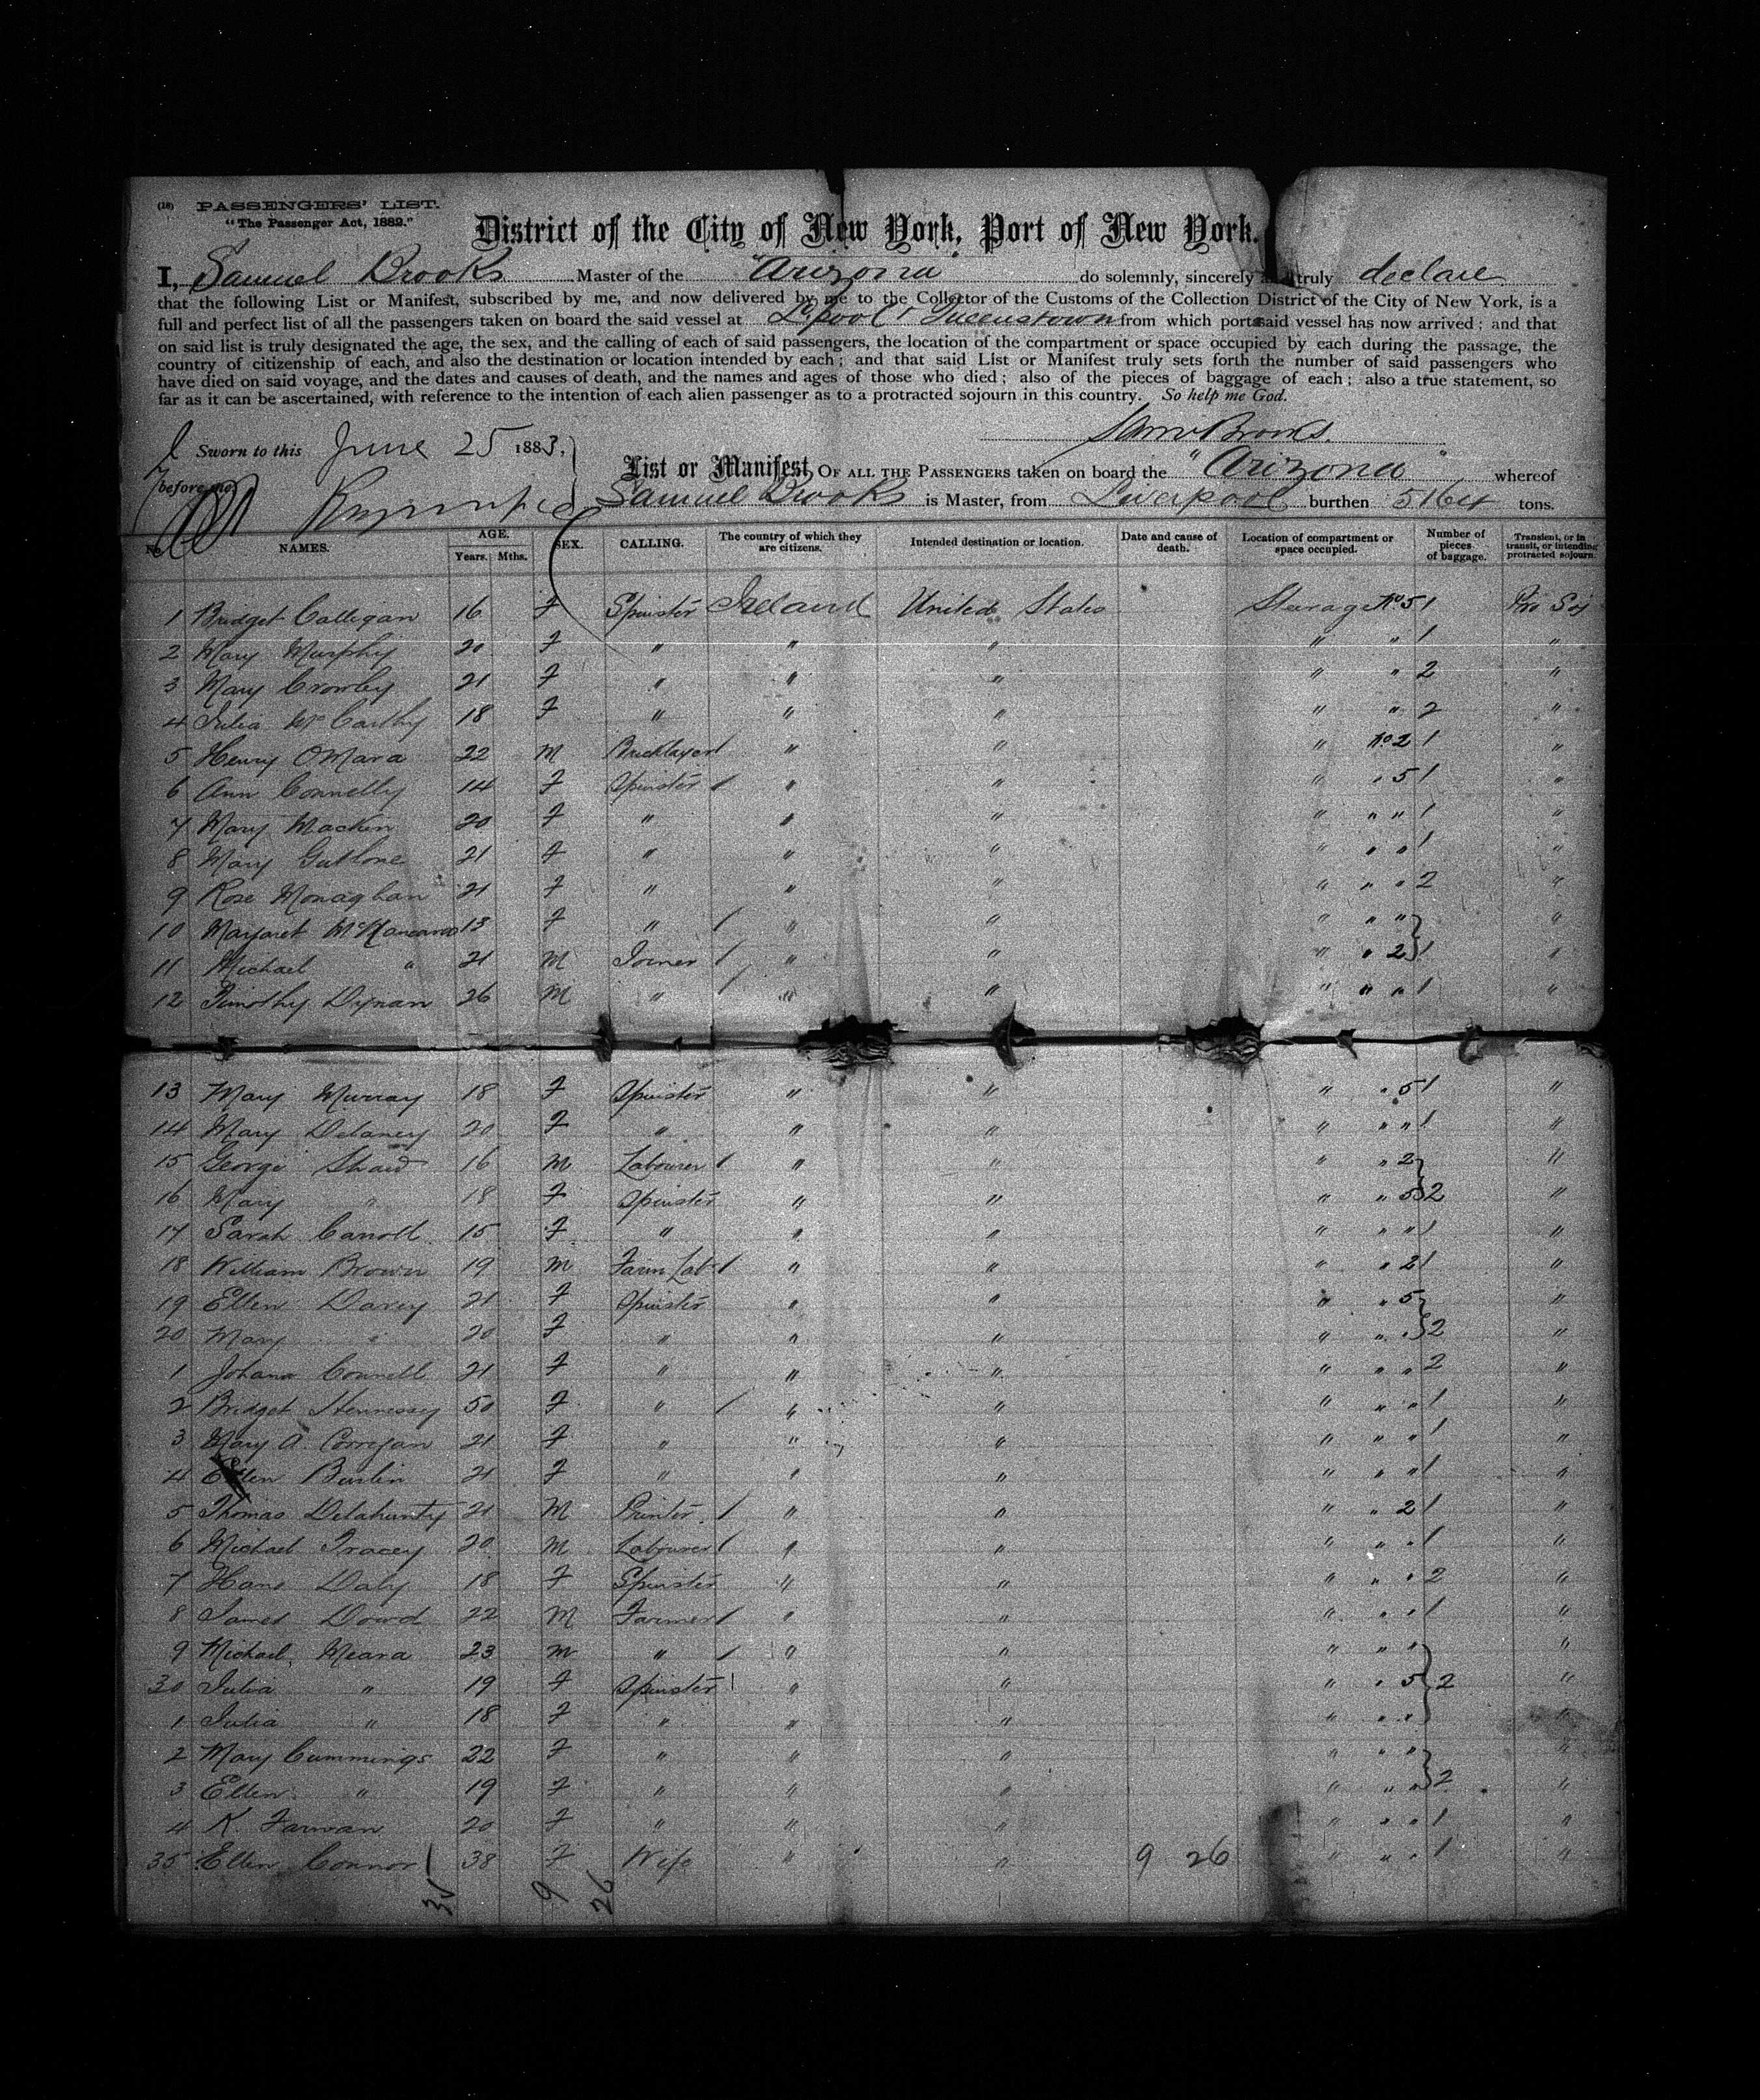 (18) PASSENGERS' LIST.
"The Passenger Act, 1882."
District of the City of New York, Port of New York.
I, Samuel Brooks Master of the "Arizona" do solemnly, sincerely and truly declare
that the following List or Manifest, subscribed by me, and now delivered by me to the Collector of the Customs of the Collection District of the City of New York, is a
full and perfect list of all the passengers taken on board the said vessel at L'pool & Queenstown from which port said vessel has now arrived; and that
on said list is truly designated the age, the sex, and the calling of each of said passengers, the location of the compartment or space occupied by each during the passage, the
country of citizenship of each, and also the destination or location intended by each; and that said List or Manifest truly sets forth the number of said passengers who
have died on said voyage, and the dates and causes of death, and the names and ages of those who died; also of the pieces of baggage of each; also a true statement, so
far as it can be ascertained, with reference to the intention of each alien passenger as to a protracted sojourn in this country. So help me God.
Saml Brooks.
Sworn to this June 25 1883,
before me
List or Manifest OF ALL THE PASSENGERS taken on board the "Arizona" whereof
Samuel Brooks is Master, from Liverpool burthen 5164 tons.
No. NAMES. AGE. Years. Mths. SEX. CALLING. The country of which they are citizens. Intended destination or location. Date and cause of death. Location of compartment or space occupied. Number of pieces of baggage. Transient, or in transit, or intending protracted sojourn.
1 Bridget Calligan 16 F Spinster Ireland United States Steerage No 5 1 Pro Soj
2 Mary Murphy 20 F " " " " " 1 "
3 Mary Crowley 21 F " " " " " 2 "
4 Julia McCarthy 18 F " " " " " 2 "
5 Henry OMara 22 M Bricklayer " " " No 2 1 "
6 Ann Connelly 14 F Spinster " " " " 5 1 "
7 Mary Mackin 20 F " " " " " " 1 "
8 Mary 21 F " " " " " " 1 "
9 Rose Monaghan 21 F " " " " " " 2 "
10 Margaret 13 F " " " " " " "
11 Michael " 21 M Joiner " " " " 2 1 "
12 Timothy Dynan 26 M " " " " " " 1 "
13 Mary Murray 18 F Spinster " " " " 5 1 "
14 Mary Delaney 20 F " " " " " " 1 "
15 George Shaw 16 M Labourer " " " " 2 "
16 Mary " 18 F Spinster " " " " 5 2 "
17 Sarah Carroll 15 F " " " " " " 1 "
18 William Brown 19 M Farm Lab " " " " 2 1 "
19 Ellen Darcy 21 F Spinster " " " " 5 "
20 Mary " 20 F " " " " " " 2 "
1 Johana Connell 21 F " " " " " " 2 "
2 Bridget Hennessy 50 F " " " " " " 1 "
3 Mary A Corrigan 21 F " " " " " " 1 "
4 Ellen 21 F " " " " " " 1 "
5 Thomas Delahunty 21 M Printer. " " " " 2 1 "
6 Michael Tracey 20 M Labourer " " " " " 1 "
7 Hano Daly 18 F Spinster " " " " " 2 "
8 James Dowd 22 M Farmer " " " " " 1 "
9 Michael Meara 23 M " " " " " " "
30 Julia " 19 F Spinster " " " " 5 2 "
1 Julia " 18 F " " " " " " "
2 Mary Cummings 22 F " " " " " " "
3 Ellen " 19 F " " " " " " 2 "
4 K. 20 F " " " " " " 1 "
35 Ellen Connor 38 F Wife " " 9 26 " " " 1 "
35 9 26